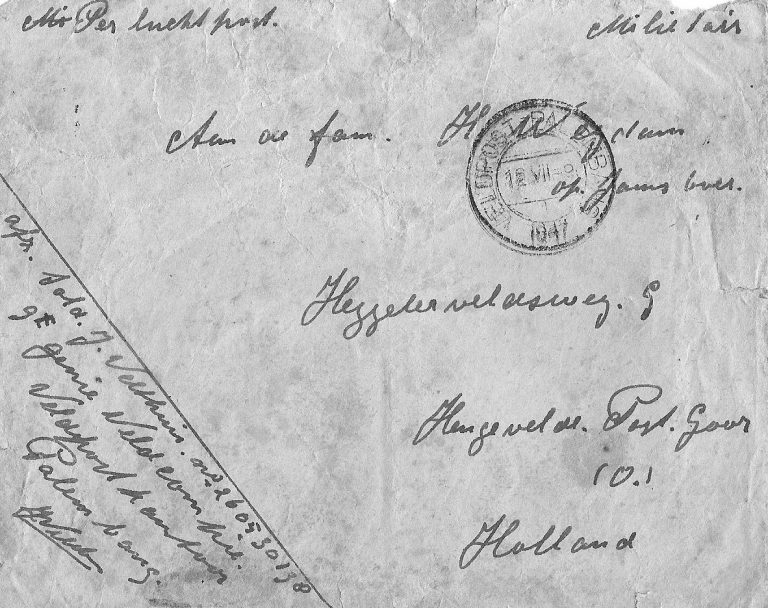 Per luchtpost.
Militair
Aan de fam. H
op Jams over.
VELDPOST PALEMBANG
12 VII
1947
Heggelerveldsweg. 9
Hengevelde. Post. Goor
(O.)
Holland
afz. Sold. J. Velthuis. no 260530138
9E genie Veld comp
Veldpost kantoor
Palembang.